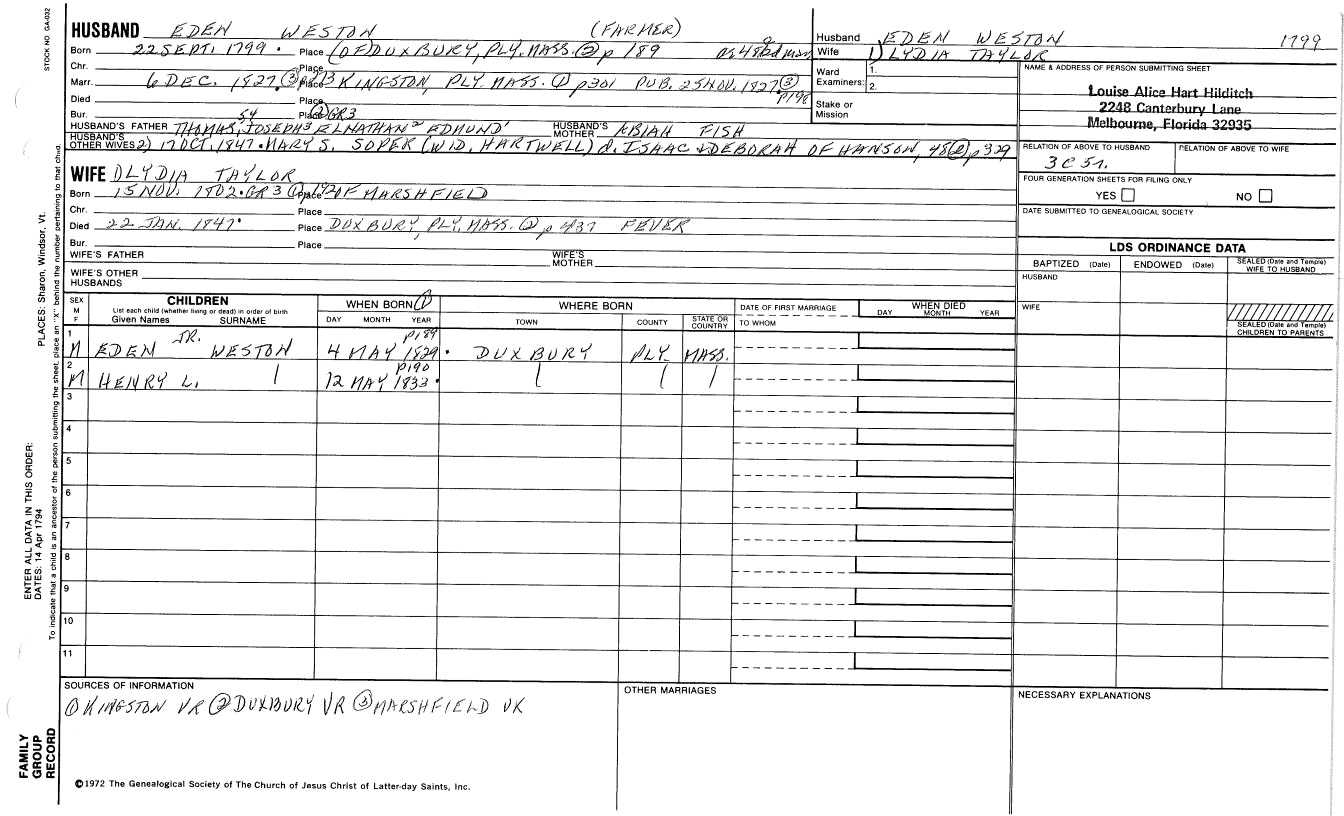 STOCK NO GA-032
HUSBAND EDEN WESTON (FARMER)
Born 22 SEPT. 1799. Place (OF) DUXBURY, PLY. MASS. ② p 189
Chr. Place
Marr. 6 DEC. 1827. ③ Place KINGSTON, PLY. MASS. ① p301 PUB. 25 NOV. 1827. ③ p198
Died Place
Bur. Place GR3
HUSBAND'S FATHER THOMAS, JOSEPH³ ELNATHAN² EDMUND¹ HUSBAND'S MOTHER ABIAH FISH
HUSBAND'S OTHER WIVES 2) 17 OCT. 1847. MARY S. SOPER (WID. HARTWELL) d. ISAAC & DEBORAH OF HANSON, 48 ② p 329
WIFE 1) LYDIA TAYLOR
Born 15 NOV. 1802. GR 3 Place OF MARSHFIELD
Chr. Place
Died 22 JAN. 1847. Place DUXBURY, PLY. MASS. ② p 437 FEVER
Bur. Place
WIFE'S FATHER WIFE'S MOTHER
WIFE'S OTHER HUSBANDS
Husband EDEN WESTON 1799
Wife 1) LYDIA TAYLOR
Ward Examiners: 1.
2.
Stake or Mission
NAME & ADDRESS OF PERSON SUBMITTING SHEET
Louise Alice Hart Hilditch
2248 Canterbury Lane
Melbourne, Florida 32935
RELATION OF ABOVE TO HUSBAND RELATION OF ABOVE TO WIFE
3C 5r.
FOUR GENERATION SHEETS FOR FILING ONLY
YES NO
DATE SUBMITTED TO GENEALOGICAL SOCIETY
LDS ORDINANCE DATA
BAPTIZED (Date) ENDOWED (Date) SEALED (Date and Temple) WIFE TO HUSBAND
HUSBAND
WIFE
SEALED (Date and Temple) CHILDREN TO PARENTS
SEX M F CHILDREN WHEN BORN ① WHERE BORN DATE OF FIRST MARRIAGE WHEN DIED
List each child (whether living or dead) in order of birth
Given Names SURNAME DAY MONTH YEAR TOWN COUNTY STATE OR COUNTRY TO WHOM DAY MONTH YEAR
1 M EDEN JR. WESTON 4 MAY 1829. p189 DUXBURY PLY MASS.
2 M HENRY L. 12 MAY 1833. p190
3
4
5
6
7
8
9
10
11
SOURCES OF INFORMATION
① KINGSTON VR ② DUXBURY VR ③ MARSHFIELD VR
OTHER MARRIAGES
NECESSARY EXPLANATIONS
©1972 The Genealogical Society of The Church of Jesus Christ of Latter-day Saints, Inc.
PLACES: Sharon, Windsor, Vt.
ENTER ALL DATA IN THIS ORDER:
DATES: 14 Apr 1794
To indicate that a child is an ancestor of the person submitting the sheet, place an "X" behind the number pertaining to that child.
FAMILY GROUP RECORD